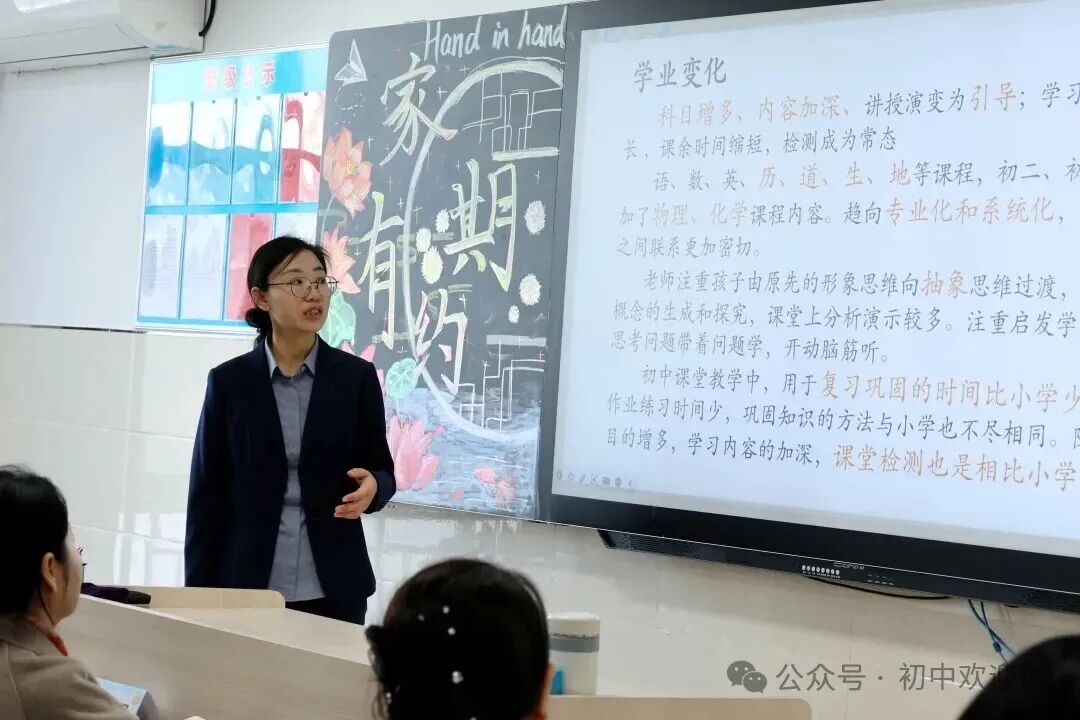 班级公示
Hand in hand
家有期约
学业变化
科目增多、内容加深、讲授演变为引导；学习
长，课余时间缩短，检测成为常态
语、数、英、历、道、生、地等课程，初二、初
加了物理、化学课程内容。趋向专业化和系统化，
之间联系更加密切。
老师注重孩子由原先的形象思维向抽象思维过渡，
概念的生成和探究，课堂上分析演示较多。注重启发学
思考问题带着问题学，开动脑筋听。
初中课堂教学中，用于复习巩固的时间比小学少
作业练习时间少，巩固知识的方法与小学也不尽相同。
目的增多，学习内容的加深，课堂检测也是相比小学
公众号 · 初中欢